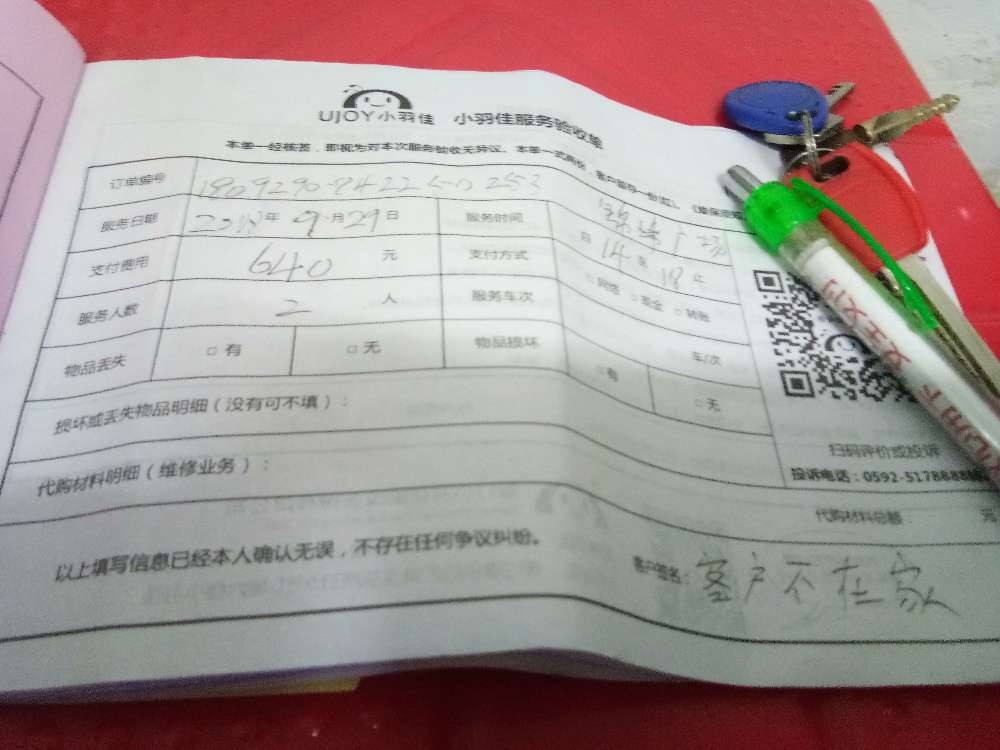 UJOY小羽佳 小羽佳服务验收单
本单一经核签，即视为对本次服务验收无异议。本单一式两份，客户留存一份(红)，
订单编号
服务日期 2018年 9月29日 服务时间 自 14 至 18 止
支付费用 640 元 支付方式 □网络 □现金 □转账
服务人数 2 人 服务车次 车/次
物品丢失 □ 有 □ 无 物品损坏 □有 □无
损坏或丢失物品明细（没有可不填）：
扫码评价或投诉
代购材料明细（维修业务）：
投诉电话：0592-5178888
代购材料总额： 元
以上填写信息已经本人确认无误，不存在任何争议纠纷。
客户签名：客户不在家